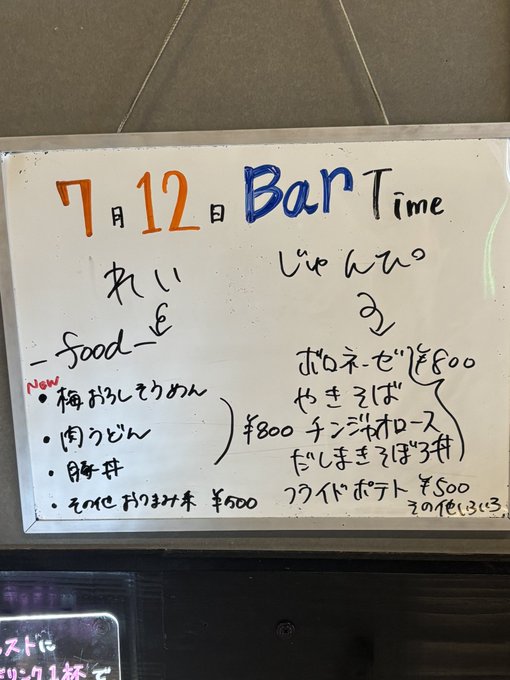 7月12日 Bar Time
れい
じゅんぴ
- food -
New
・梅おろしそうめん
・肉うどん
・豚丼
¥800
・その他おつまみ系 ¥500
ボロネーゼ
やきそば
チンジャオロース
だしまきそぼろ丼
¥800
フライドポテト ¥500
その他いろいろ
ストに
リンク1杯で